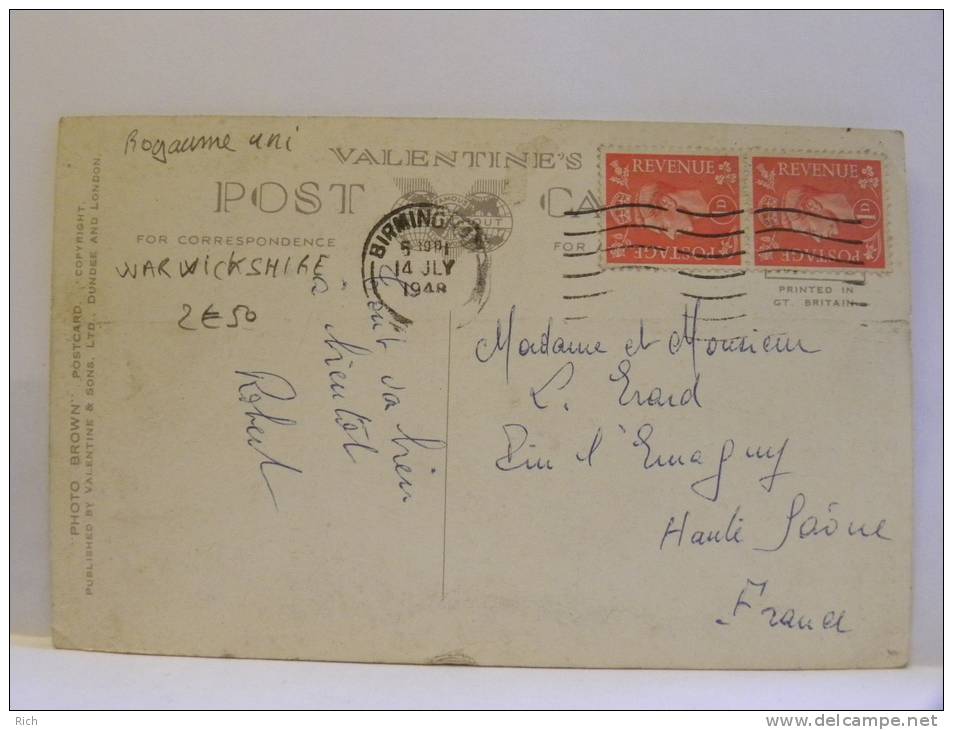 Royaume uni
VALENTINE'S
POST CA
FOR CORRESPONDENCE
FOR
WARWICKSHIRE
2€50
BIRMINGHAM
14 JLY
1948
REVENUE
1D
POSTAGE
REVENUE
1D
POSTAGE
PRINTED IN
GT. BRITAIN
Tout va bien
à bientôt
Robert
Madame et Monsieur
L. Erard
Pin l'Emagny
Haute Saône
France
"PHOTO BROWN" POSTCARD. COPYRIGHT.
PUBLISHED BY VALENTINE & SONS, LTD., DUNDEE AND LONDON.
Rich
www.delcampe.net